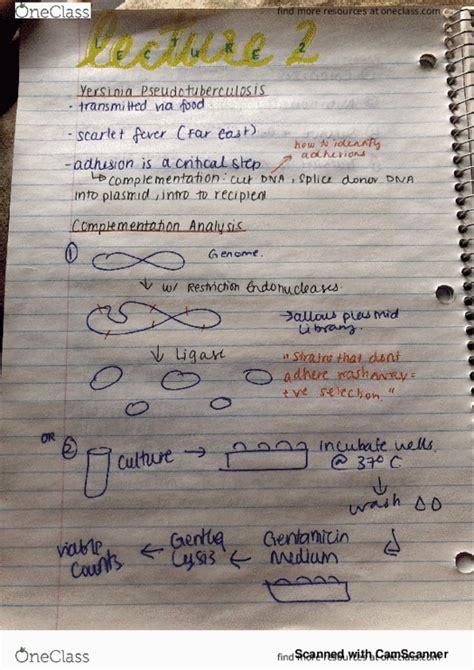 OneClass
find more resources at oneclass.com
lecture 2
LECTURE 2
Yersinia Pseudotuberculosis
- transmitted via food
- scarlet fever (Far East)
how to identify
adhesions
- adhesion is a critical step
↳ complementation: cut DNA, splice donor DNA
into plasmid, intro to recipient
Complementation Analysis
① Genome.
↓ w/ Restriction Endonucleases.
→ allows plasmid
library
↓ Ligase
"strains that dont
adhere wash away =
+ve selection"
OR
② culture → incubate wells
@ 37° C
↓
wash
Gentamicin
Medium
← Gentle
Lysis
← viable
counts
OneClass
find more resources at oneclass.com
Scanned with CamScanner